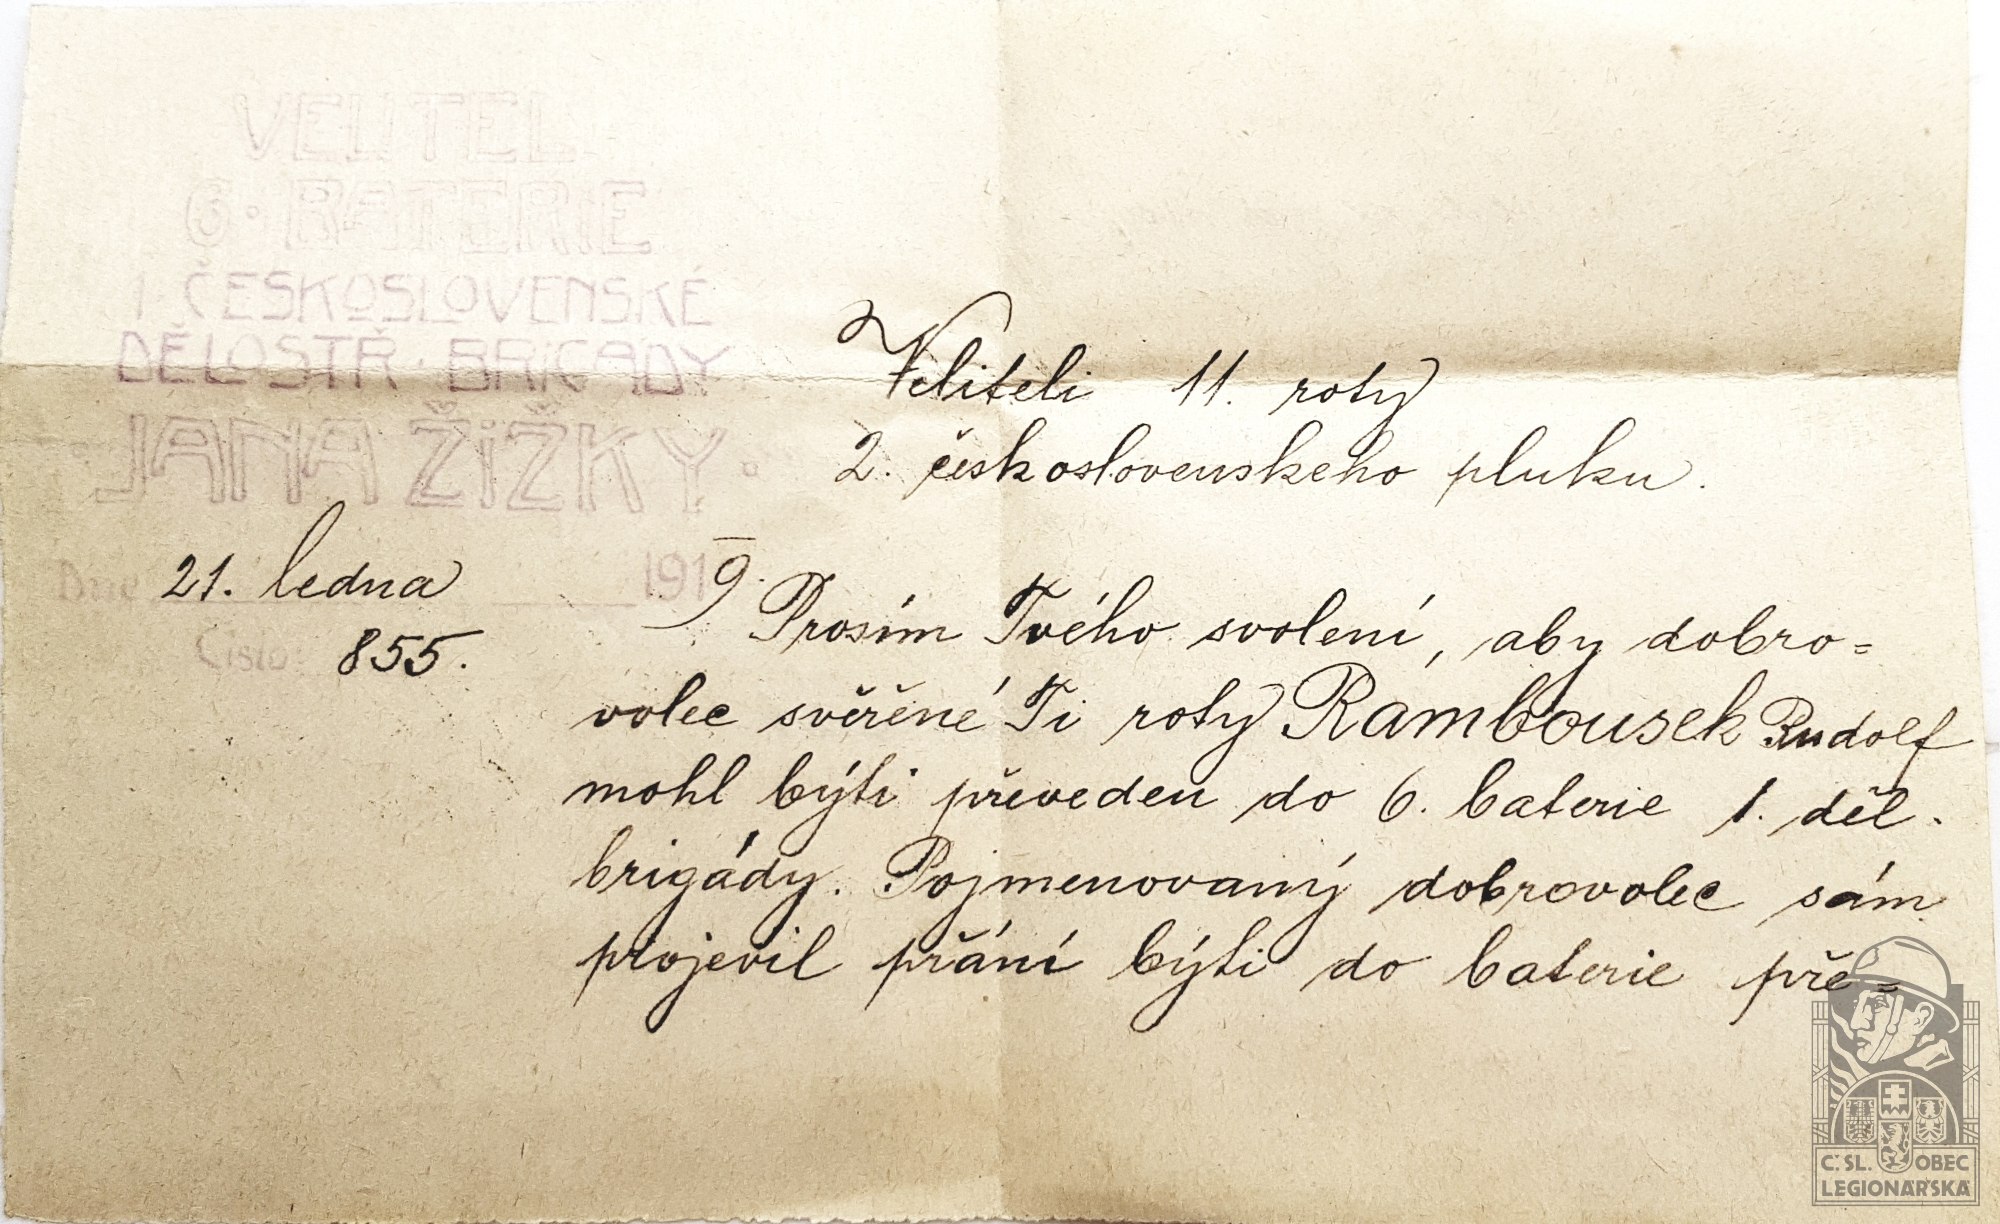 VELITEL
6. BATERIE
1 ČESKOSLOVENSKÉ
DĚLOSTŘ. BRIGADY
JANA ŽIŽKY.
Dne 21. ledna 1919.
Číslo: 855.
Veliteli 11. roty
2. československeho pluku.
Prosím Tvého svolení, aby dobro=
volec svěřěné Ti roty Rambousek Rudolf
mohl býti převeden do 6. baterie 1. děl.
brigády. Pojmenovaný dobrovolec sám
projevil přání býti do baterie pře=
Č.SL. OBEC
LEGIONÁŘSKÁ